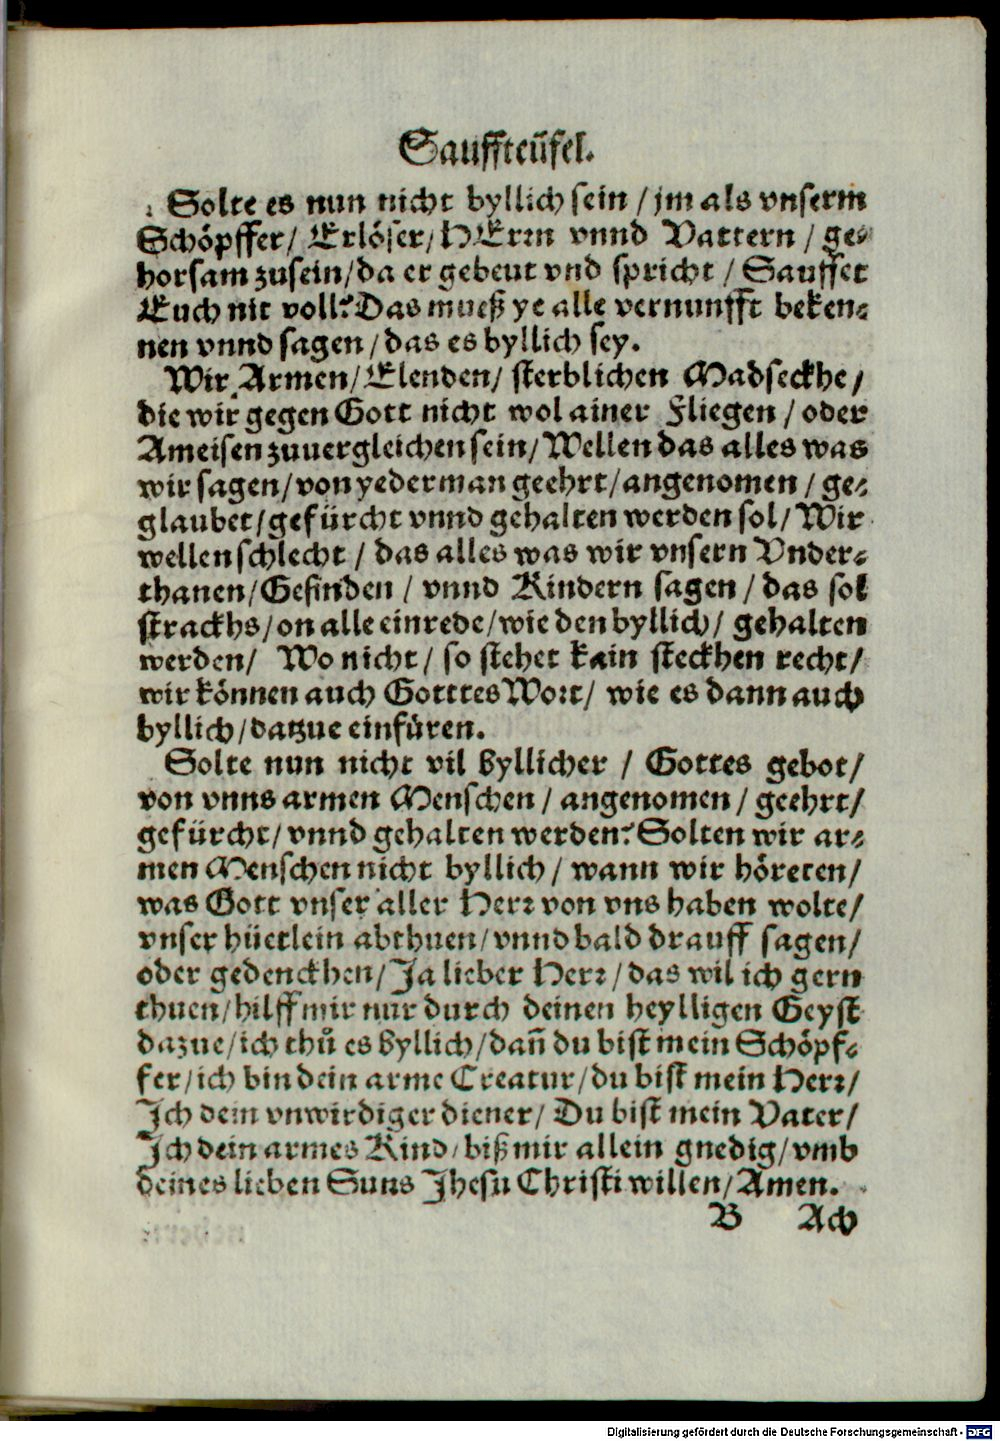 Sauffteüfel.
Solte es nun nicht byllich sein / jm als vnserm
Schöpffer/ Erlöser/ HErrn vnnd Vattern / ge-
horsam zusein/ da er gebeut vnd spricht / Sauffet
Euch nit voll? Das mueß ye alle vernunfft beken-
nen vnnd sagen / das es byllich sey.
Wir Armen/ Elenden/ sterblichen Madseckhe/
die wir gegen Gott nicht wol ainer Fliegen / oder
Ameisen zuuergleichen sein/ Wellen das alles was
wir sagen/ von yederman geehrt/ angenomen / ge-
glaubet/ gefürcht vnnd gehalten werden sol/ Wir
wellen schlecht / das alles was wir vnsern Vnder-
thanen/ Gesinden / vnnd Kindern sagen / das sol
strackhs/ on alle einrede/ wie den byllich/ gehalten
werden/ Wo nicht/ so stehet kain steckhen recht/
wir können auch Gotttes Wort/ wie es dann auch
byllich/ datzue einfüren.
Solte nun nicht vil byllicher / Gottes gebot/
von vnns armen Menschen / angenomen / geehrt/
gefürcht/ vnnd gehalten werden? Solten wir ar-
men Menschen nicht byllich/ wann wir höreten/
was Gott vnser aller Herr von vns haben wolte/
vnser hüetlein abthuen/ vnnd bald drauff sagen/
oder gedenckhen/ Ja lieber Herr/ das wil ich gern
thuen/ hilff mir nur durch deinen heylligen Geyst
dazue/ ich thů es byllich/ dañ du bist mein Schöpf-
fer/ ich bin dein arme Creatur/ du bist mein Herr/
Ich dein vnwirdiger diener/ Du bist mein Vater/
Ich dein armes Kind/ biß mir allein gnedig/ vmb
deines lieben Suns Jhesu Christi willen/ Amen.
B Ach
Digitalisierung gefördert durch die Deutsche Forschungsgemeinschaft - DFG